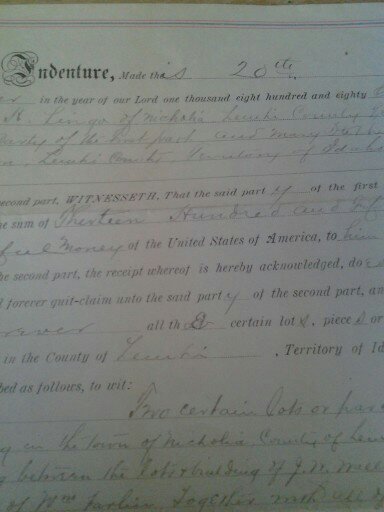 Indenture, Made this 20th
in the year of our Lord one thousand eight hundred and eighty
K. Lingo of Nicholia Lemhi County
Party of the first part and Mary
Lemhi County Territory of Idaho
second part, WITNESSETH, That the said party of the first
the sum of Thirteen Hundred and
Money of the United States of America, to him
the second part, the receipt whereof is hereby acknowledged, do
forever quit-claim unto the said party of the second part, and
all th certain lots, piece s or
in the County of Lemhi, Territory of
bed as follows, to wit:
Two certain lots or
in the town of Nicholia County of
between the lots building of J. W.
of Wm Together with all